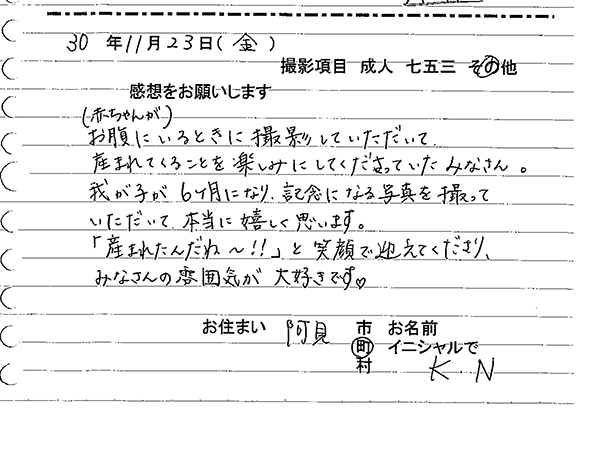 30 年11月23日(金)
撮影項目 成人 七五三 その他
感想をお願いします
(赤ちゃんが)
お腹にいるときに撮影していただいて
産まれてくることを楽しみにしてくださっていたみなさん。
我が子が6ヶ月になり、記念になる写真を撮って
いただいて、本当に嬉しく思います。
「産まれたんだね〜!!」と笑顔で迎えてくださり、
みなさんの雰囲気が大好きです♡
お住まい 阿見 市 町 村
お名前 イニシャルで
K・N